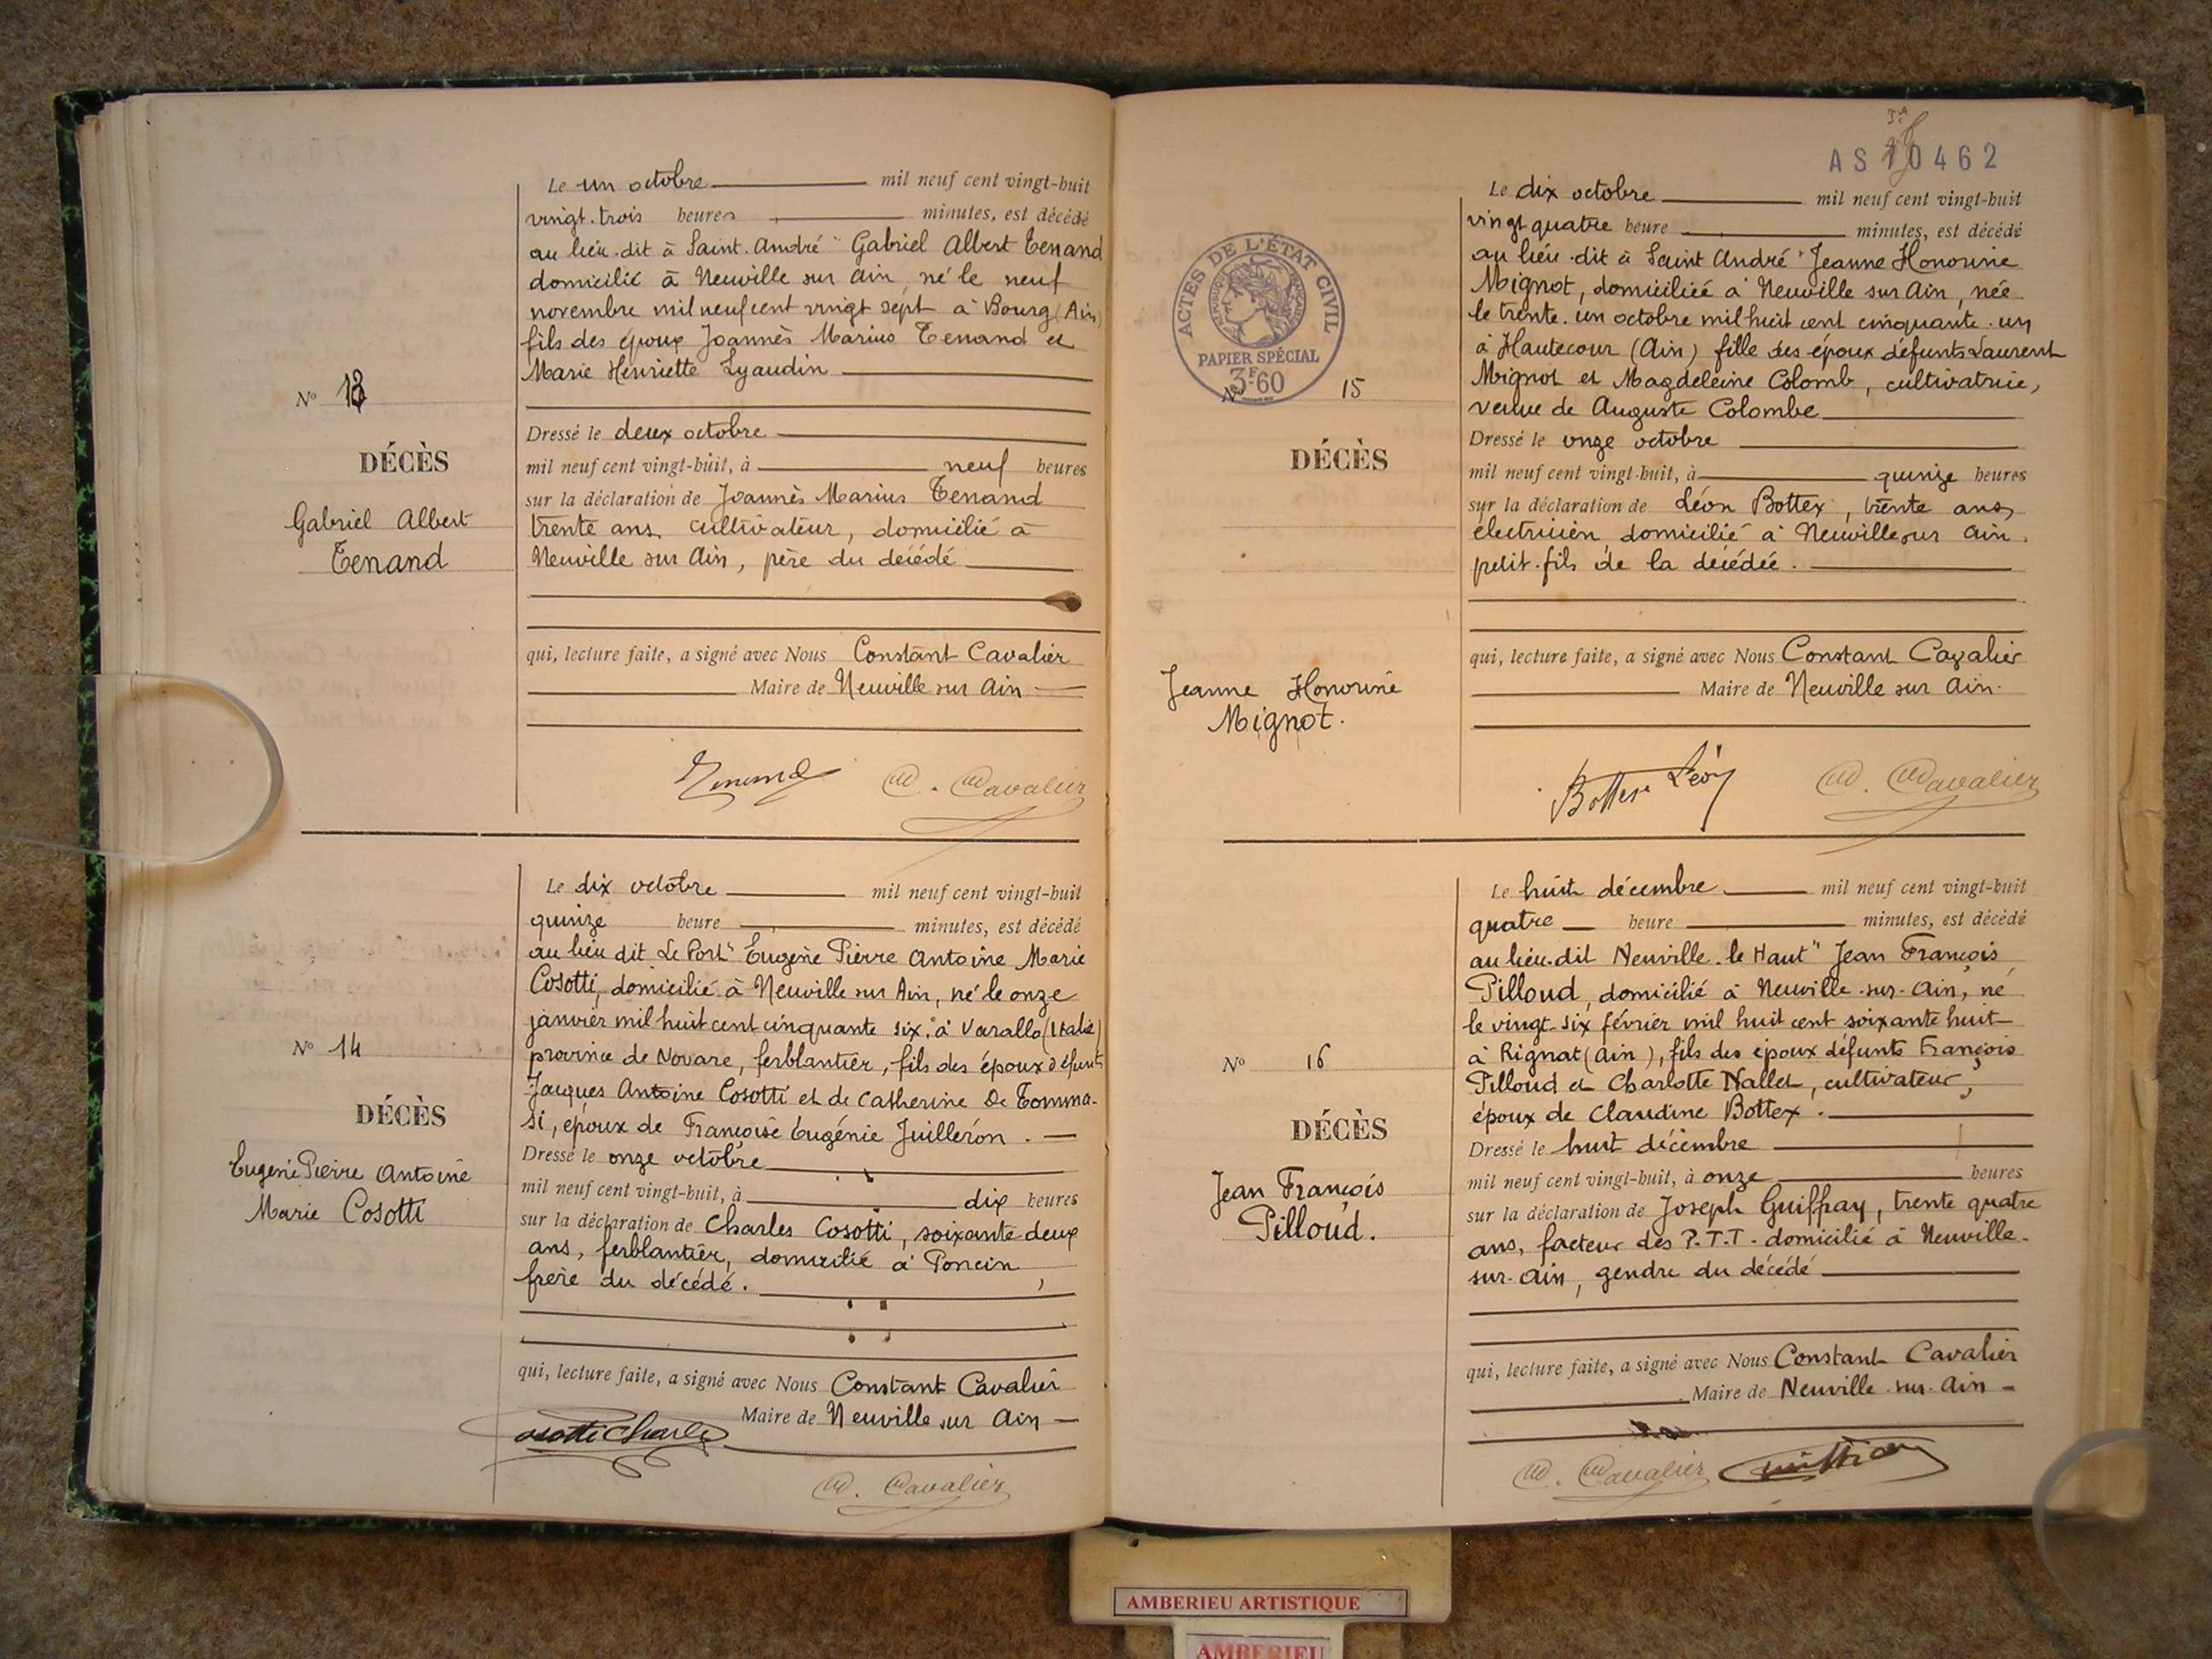 Nº 13
DÉCÈS
Gabriel Albert
Tenand
Le un octobre mil neuf cent vingt-huit
vingt-trois heures minutes, est décédé
au lieu-dit à Saint-André" Gabriel Albert Tenand
domicilié à Neuville sur Ain, né le neuf
novembre mil neuf cent vingt sept à Bourg (Ain)
fils des époux Joannès Marius Tenand et
Marie Henriette Lyaudin
Dressé le deux octobre
mil neuf cent vingt-huit, à neuf heures
sur la déclaration de Joannès Marius Tenand
trente ans, cultivateur, domicilié à
Neuville sur Ain, père du décédé
qui, lecture faite, a signé avec Nous Constant Cavalier
Maire de Neuville sur Ain
Tenand C. Cavalier
Nº 14
DÉCÈS
Eugène Pierre Antoine
Marie Cosotti
Le dix octobre mil neuf cent vingt-huit
quinze heure minutes, est décédé
au lieu dit Le Port" Eugène Pierre Antoine Marie
Cosotti, domicilié à Neuville sur Ain, né le onze
janvier mil huit cent cinquante six, à Varallo (Italie)
province de Novare, ferblantier, fils des époux défunts
Jacques Antoine Cosotti et de Catherine De Tomma-
si, époux de Françoise Eugénie Juilleron.
Dressé le onze octobre
mil neuf cent vingt-huit, à dix heures
sur la déclaration de Charles Cosotti, soixante deux
ans, ferblantier, domicilié à Poncin,
frère du décédé.
qui, lecture faite, a signé avec Nous Constant Cavalier
Maire de Neuville sur Ain
Cosotti Charles
C. Cavalier
AS 10462
ACTES DE L'ÉTAT CIVIL
PAPIER SPÉCIAL
3F60
Nº 15
DÉCÈS
Jeanne Honorine
Mignot.
Le dix octobre mil neuf cent vingt-huit
vingt quatre heure minutes, est décédé
au lieu-dit à Saint André" Jeanne Honorine
Mignot, domiciliée à Neuville sur Ain, née
le trente-un octobre mil huit cent cinquante-un
à Hautecour (Ain) fille des époux défunts Laurent
Mignot et Magdeleine Colomb, cultivatrice,
veuve de Auguste Colombe
Dressé le onze octobre
mil neuf cent vingt-huit, à quinze heures
sur la déclaration de Léon Bottex, trente ans,
électricien domicilié à Neuville sur Ain,
petit-fils de la décédée.
qui, lecture faite, a signé avec Nous Constant Cavalier
Maire de Neuville sur Ain.
Bottex Léon C. Cavalier
Nº 16
DÉCÈS
Jean François
Pilloud.
Le huit décembre mil neuf cent vingt-huit
quatre heure minutes, est décédé
au lieu-dit Neuville-le Haut" Jean François
Pilloud, domicilié à Neuville-sur-Ain, né
le vingt-six février mil huit cent soixante huit
à Rignat (Ain), fils des époux défunts François
Pilloud et Charlotte Nallet, cultivateur,
époux de Claudine Bottex.
Dressé le huit décembre
mil neuf cent vingt-huit, à onze heures
sur la déclaration de Joseph Guiffray, trente quatre
ans, facteur des P.T.T. domicilié à Neuville-
sur-Ain, gendre du décédé
qui, lecture faite, a signé avec Nous Constant Cavalier
Maire de Neuville-sur-Ain
C. Cavalier Guiffray
AMBERIEU ARTISTIQUE
AMBERIEU